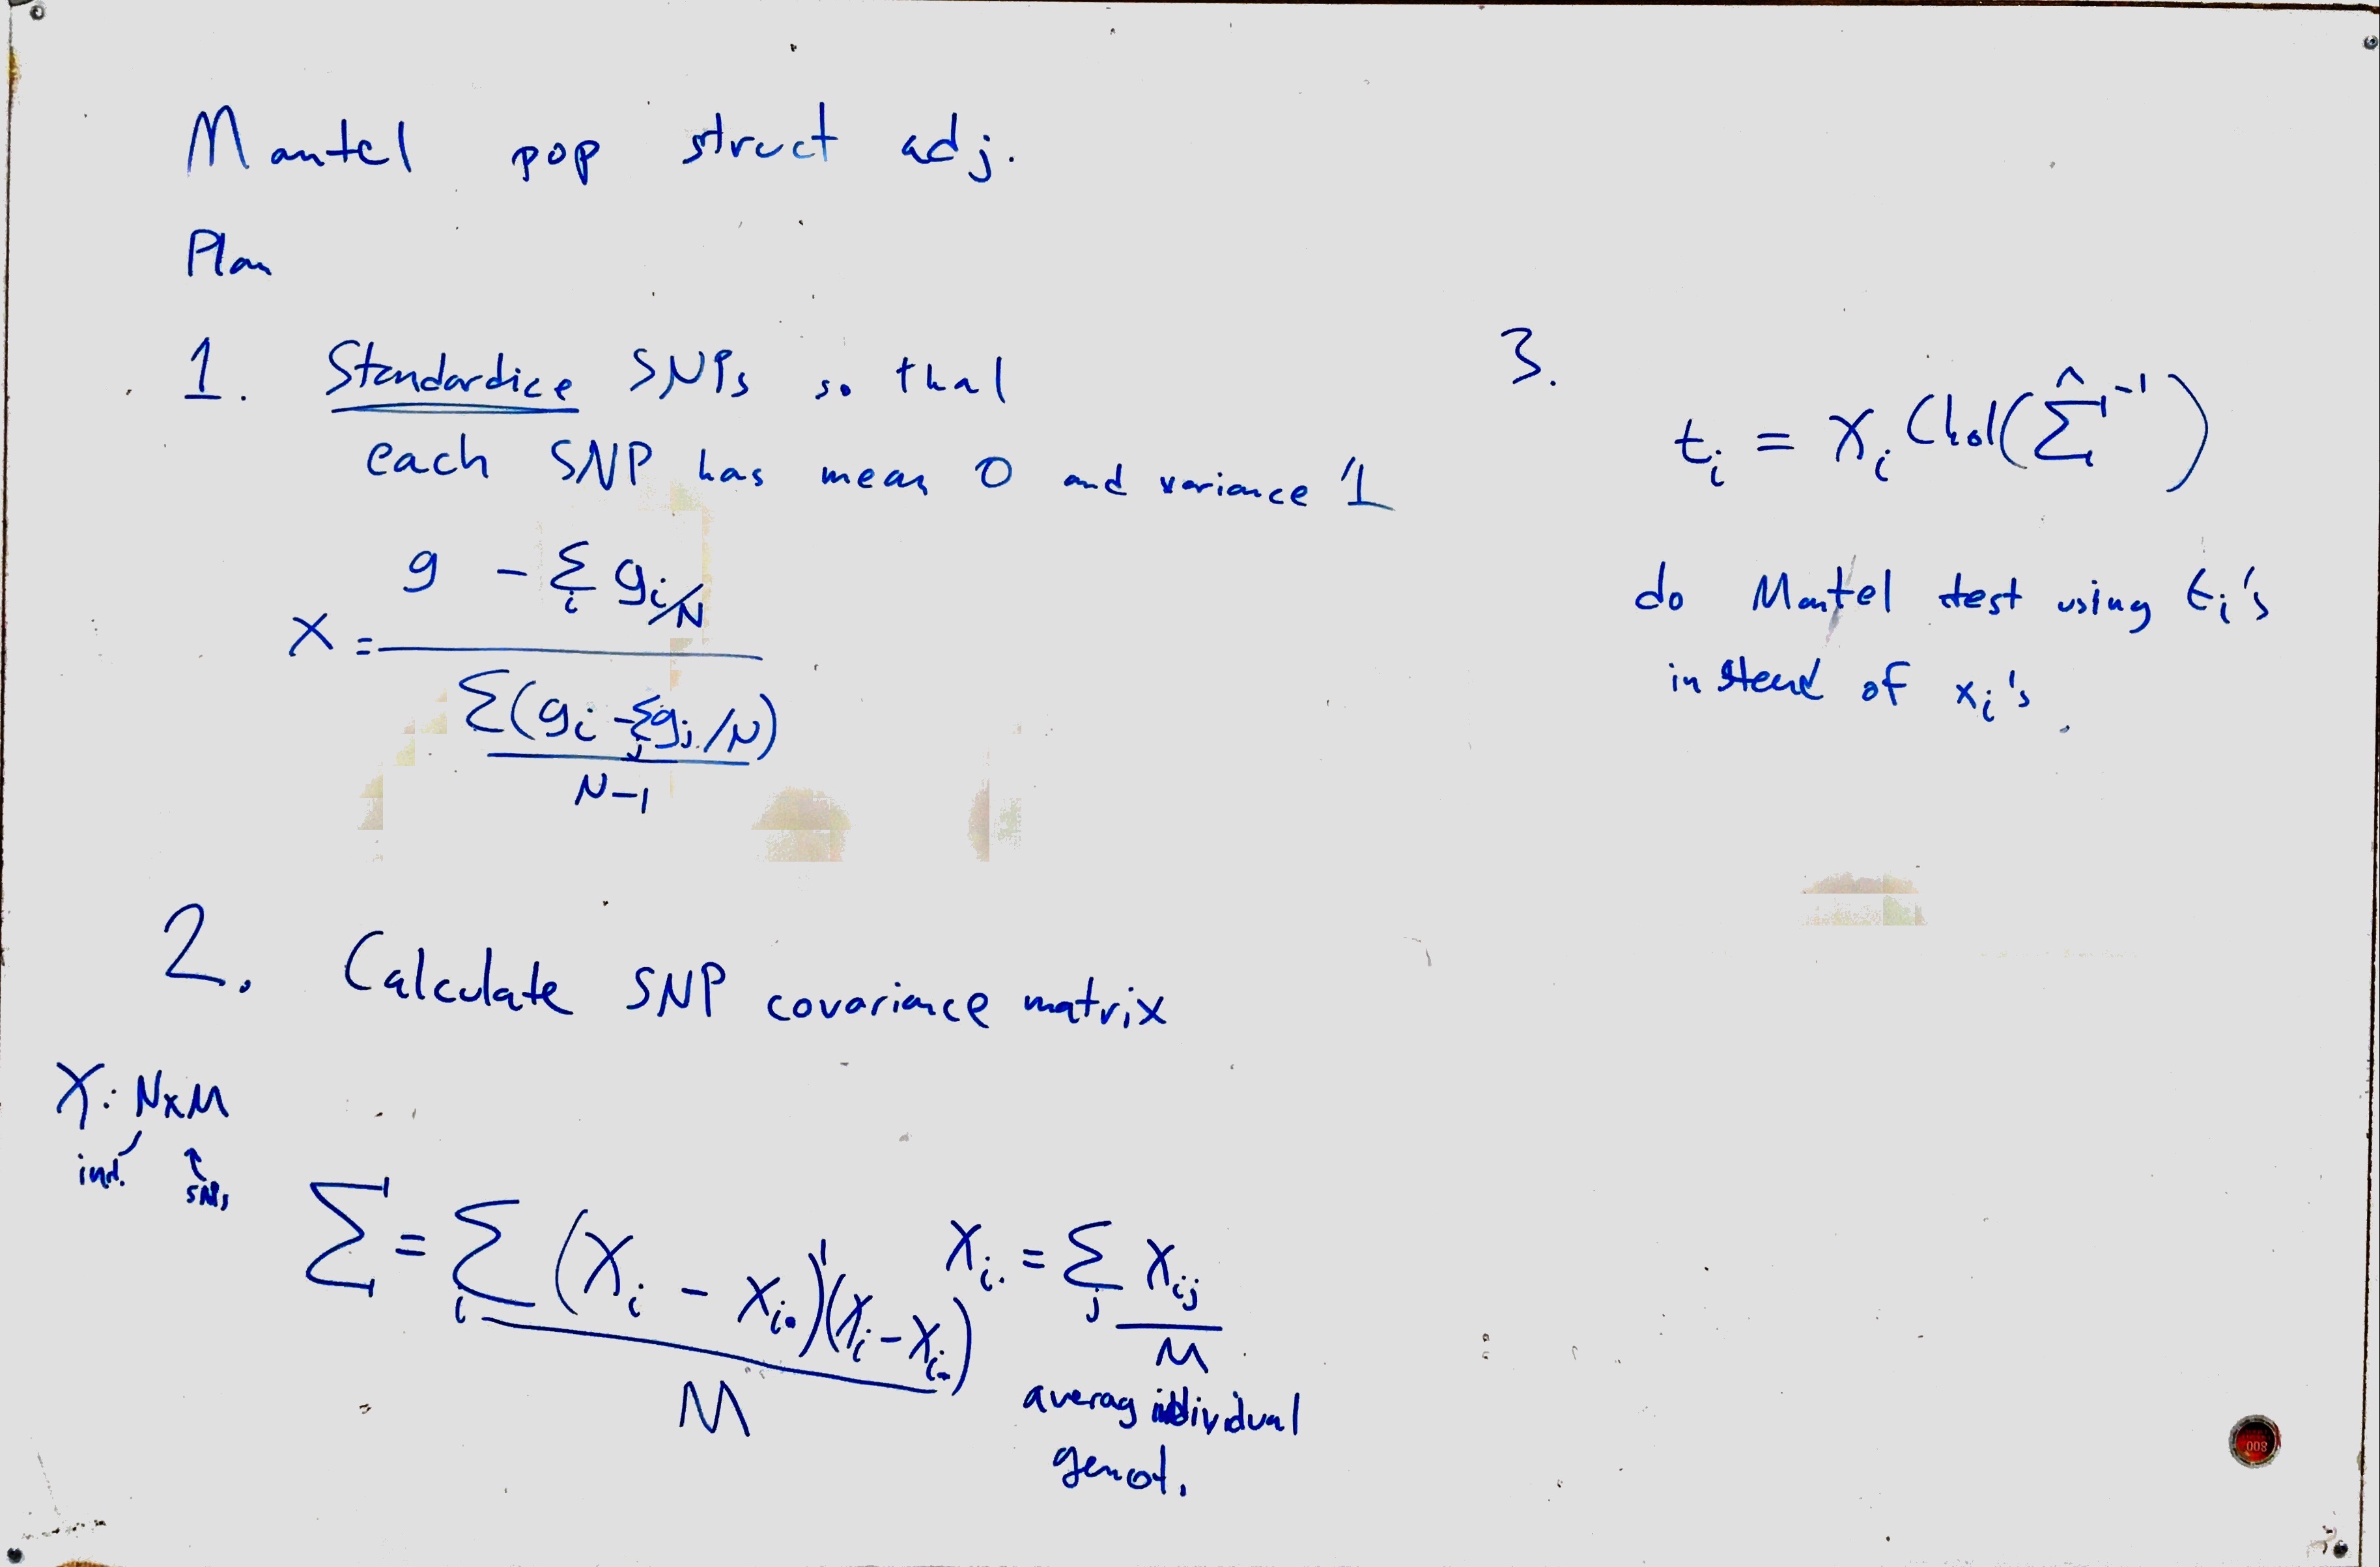 Mantel pop struct adj.
Plan
1. Standardice SNPs so that
each SNP has mean 0 and variance 1
x = (g - Σ_i g_i/N) / (Σ(g_i - Σ_j g_j/N) / N-1)
2. Calculate SNP covariance matrix
X: N×M
ind. SNPs
Σ = Σ_i (X_i - X_i.)'(X_i - X_i.) / M
X_i. = Σ_j X_ij / M
averag individual
genot.
3.
t_i = X_i Chol(Σ̂^-1)
do Mantel test using t_i's
instead of x_i's.
008